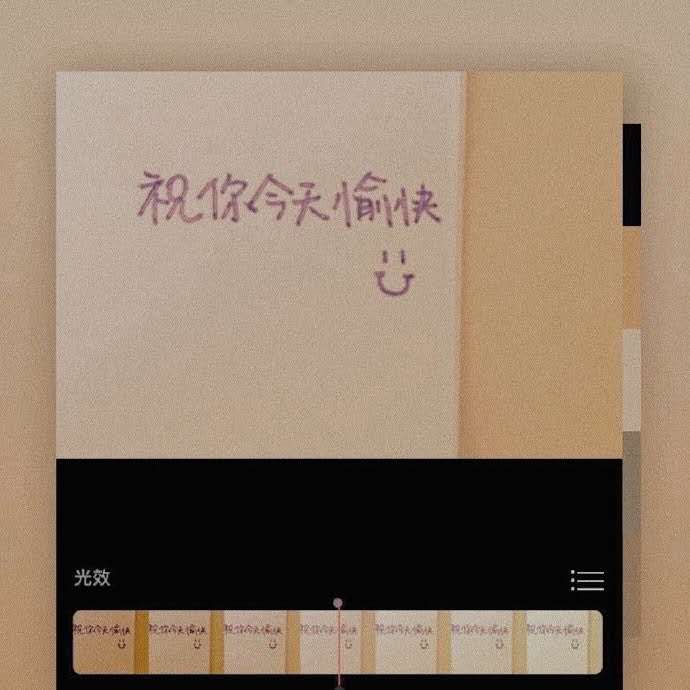 祝你今天愉快
光效
祝你今天愉快 祝你今天愉快 祝你今天愉快 祝你今天愉快 祝你今天愉快 祝你今天愉快 祝你今天愉快